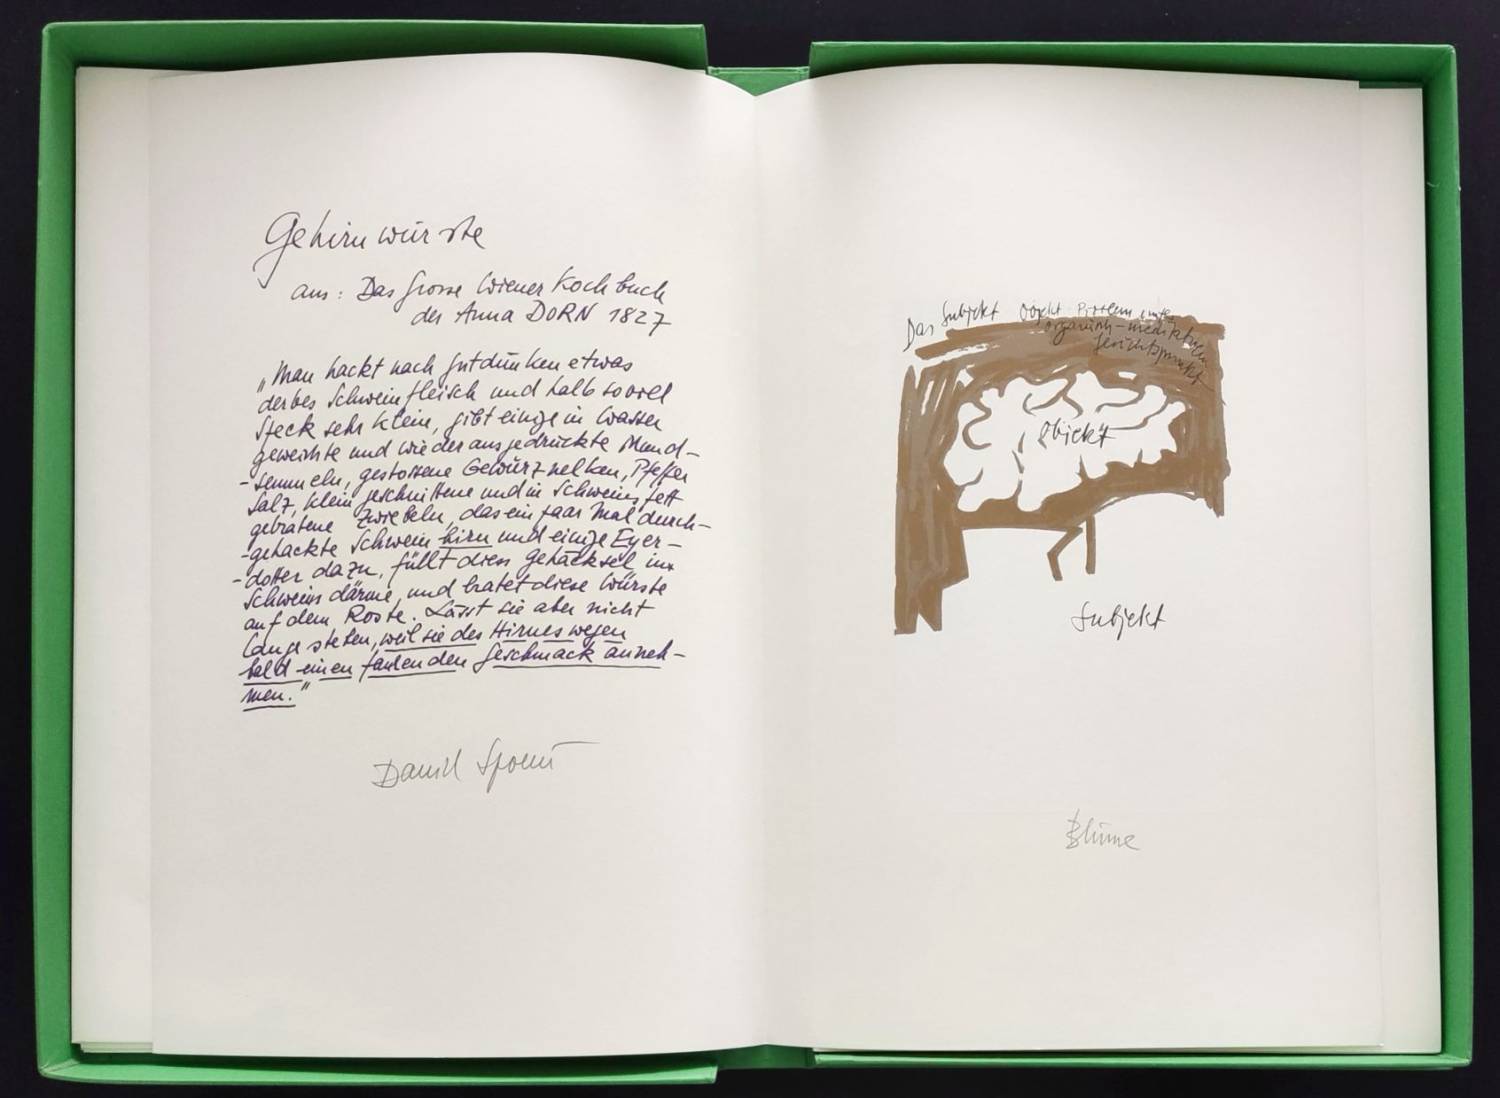 Gehirnwürste
aus: Das Grosse Wiener Kochbuch
der Anna DORN 1827
„Man hackt nach Gutdünken etwas
derbes Schweinfleisch und halb soviel
Speck sehr klein, gibt einige in Wasser
geweichte und wieder ausgedrückte Mund-
-semmeln, gestossene Gewürznelken, Pfeffer
Salz, klein geschnittene und in Schweinsfett
gebratene Zwiebeln, das ein paar Mal durch-
-gehackte Schweinhirn und einige Eyer-
-dotter dazu, füllt dies Gehäcksel in
Schweinsdärme, und bratet diese Würste
auf dem Roste. Lasst sie aber nicht
lang stehen, weil sie des Hirnes wegen
bald einen faulenden Geschmack anneh-
men."
Daniel Spoerri
Das Subjekt Objekt-Problem unter
organisch-
Gesichtspunkt
Objekt
Subjekt
Blume